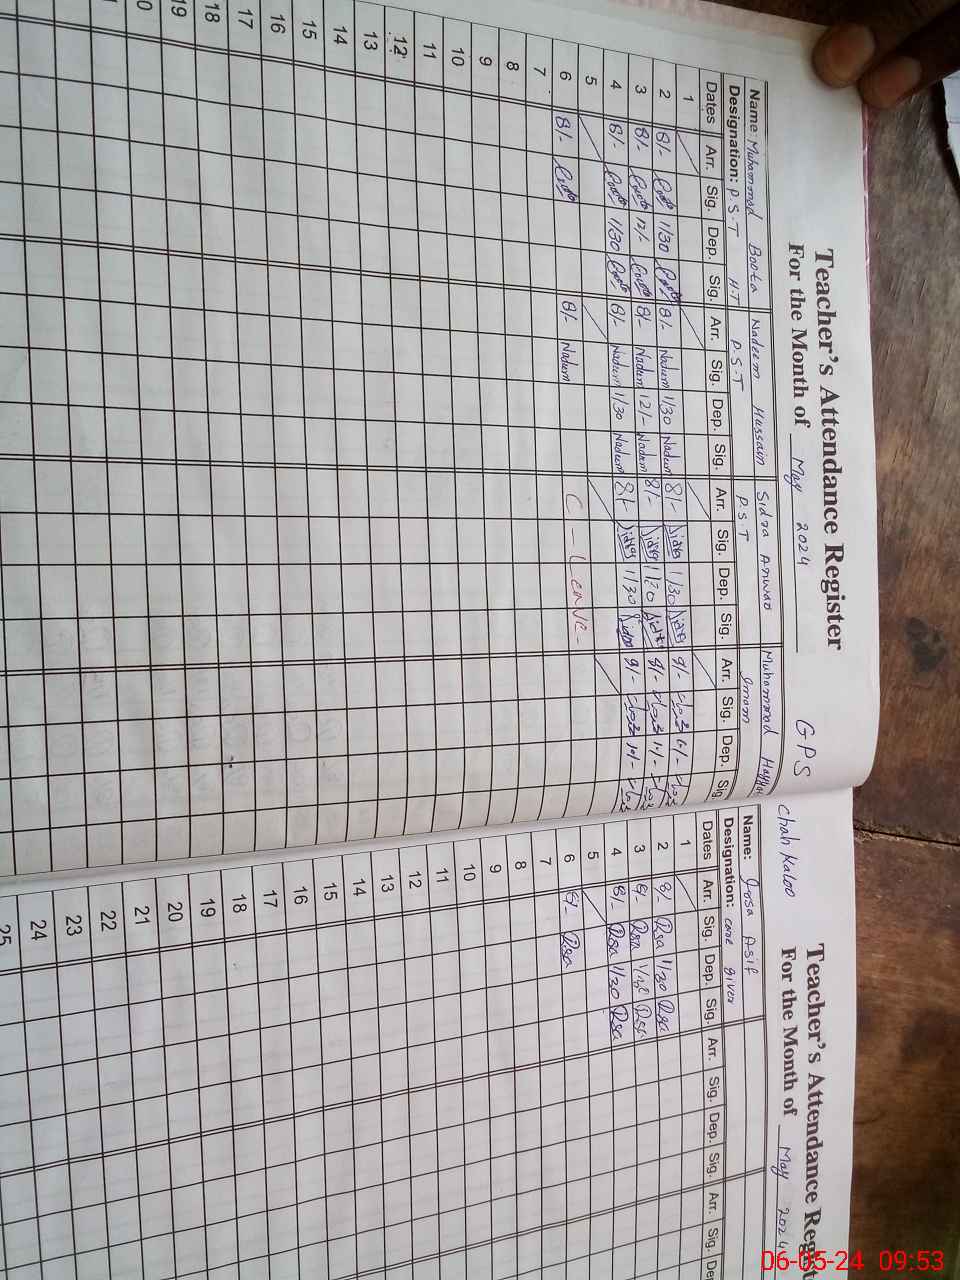 Teacher's Attendance Register
For the Month of May 2024
GPS
Name: Muhammad Boota Nadeem Hussain Sidra Anwar Muhammad
Designation: P.S.T H.T P.S.T P.S.T Imam
Dates Arr. Sig. Dep. Sig. Arr. Sig. Dep. Sig. Arr. Sig. Dep. Sig. Arr. Sig. Dep. Sig
1
2 8/- 1/30 8/- Nadeem 1/30 Nadeem 8/- Sidra 1/30 Sidra 9/-
3 8/- 12/- 8/- Nadeem 12/- Nadeem 8/- Sidra Sidra 9/-
4 8/- 1/30 8/- Nadeem 1/30 Nadeem 8/- Sidra 1/30 Sidra 9/-
5
6 8/- 8/- Nadeem C-Leave-
7
8
9
10
11
12
13
14
15
16
17
18
19
Chah Kaloo
Teacher's Attendance
For the Month of May 2024
Name: Asif
Designation: care giver
Dates Arr. Sig. Dep. Sig. Arr. Sig. Dep. Sig. Arr. Sig.
1
2 8/- 1/30
3 8/-
4 8/- 1/30
5
6 8/-
7
8
9
10
11
12
13
14
15
16
17
18
19
20
21
22
23
24
25
06-05-24 09:53